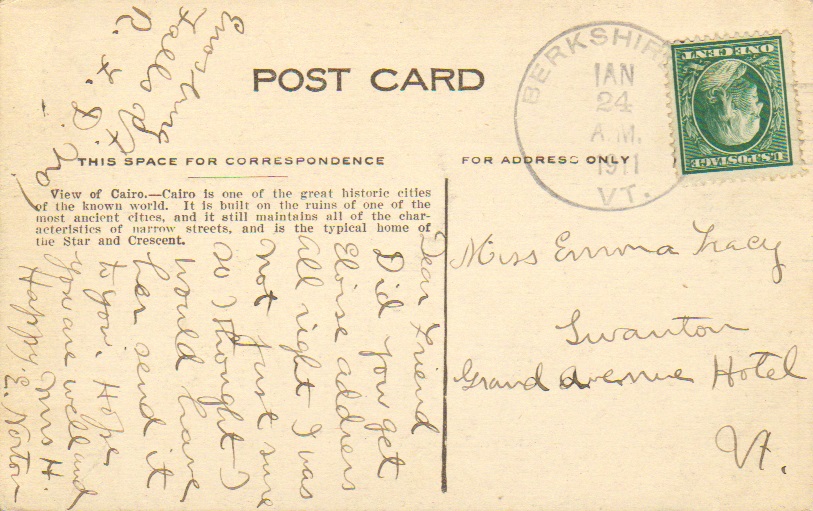 POST CARD
THIS SPACE FOR CORRESPONDENCE
FOR ADDRESS ONLY
View of Cairo.—Cairo is one of the great historic cities
of the known world. It is built on the ruins of one of the
most ancient cities, and it still maintains all of the char-
acteristics of narrow streets, and is the typical home of
the Star and Crescent.
Dear Friend
Did you get
Eloise address
all right I was
not just sure
so I thought I
would have
her send it
to you. Hope
you are well and
Happy. Mrs H.
E. Norton
Enosburg
Falls Vt
R. F. D. No 1
BERKSHIRE
JAN
24
A.M.
1911
VT.
U.S. POSTAGE
ONE CENT
Miss Emma Tracy
Swanton
Grand avenue Hotel
Vt.